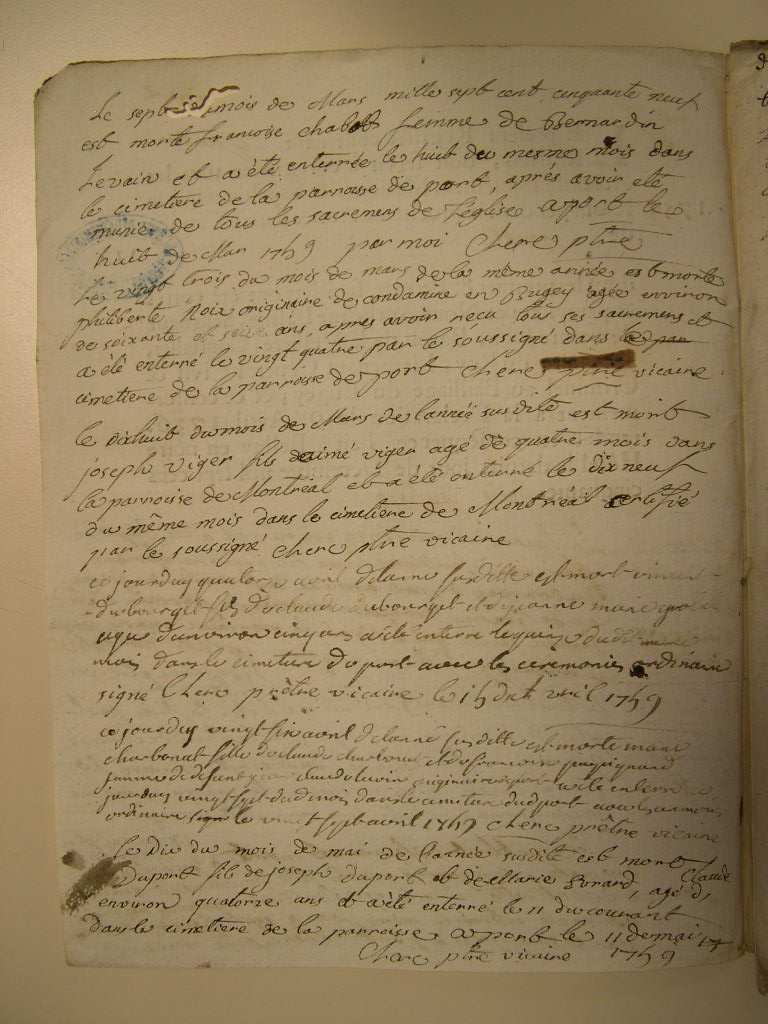 Le sept du mois de Mars mille sept cent cinquante neuf
est morte francoise chabot femme de Bernardin
Levain et a été enterrée le huit du mesme mois dans
le cimetiere de la parroisse de port, après avoir eté
munie de tous les sacremens de l'eglise a port le
huit de Mar 1759 par moi Chere ptre
Le vingt trois du mois de mars de la même année est morte
philiberte Noix originaire de condamine en Bugey agée environ
de soixante et seize ans, apres avoir recu tous ses sacremens et
a été enterré le vingt quatre par le soussigné dans le par
cimetiere de la parroisse de port Chere ptre vicaire
le dixhuit du mois de Mars de l'année susdite est mort
joseph viger fils de aimé viger agé de quatre mois dans
la parroise de Montréal et a été enterré le dix neuf
du même mois dans le cimetiere de Montréal certifié
par le soussigné chere ptre vicaire
ce jourduy quatorze avril de lanné susditte est mort
dubourget fils de claude dubourget et de jeanne marie
age denviron cinq ans a été enterre le quinze dudit
mois dans le cimetiere du port avec les ceremonies ordinaire
signé Chere prêtre vicaire le 15 dud avril 1759
ce jourduy vingt six avril de lanné susditte est morte marie
charbonat fille de claude charbonat et de francoise
femme de defunt a été enterre
jourduy vingt sept dud mois dans le cimetiere dud port avec les
ordinaire signé le vingt sept avril 1759 Chere prêtre vicaire
Le Dix du mois de mai de l'année susdite est mort Claude
Duport fils de joseph duport et de Marie Evrard, agé d'
environ quatorze ans et a été enterré le 11 du courant
dans le cimetiere de la parroisse a port le 11 de mai 17
Chere ptre vicaire 1759